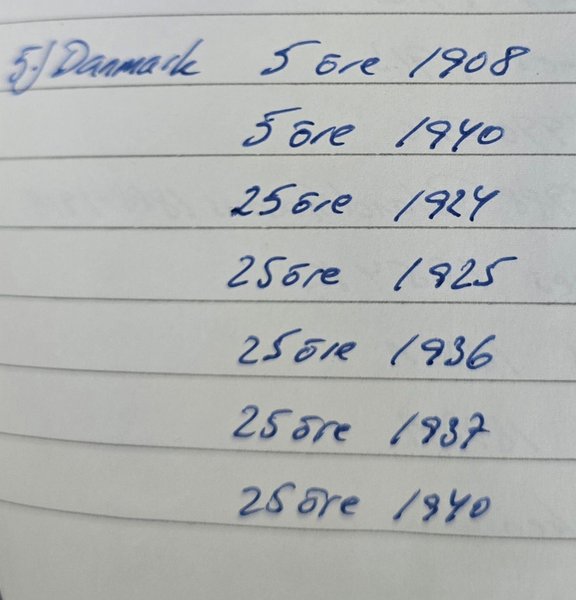 5.) Danmark 5 öre 1908
5 öre 1940
25 öre 1924
25 öre 1925
25 öre 1936
25 öre 1937
25 öre 1940